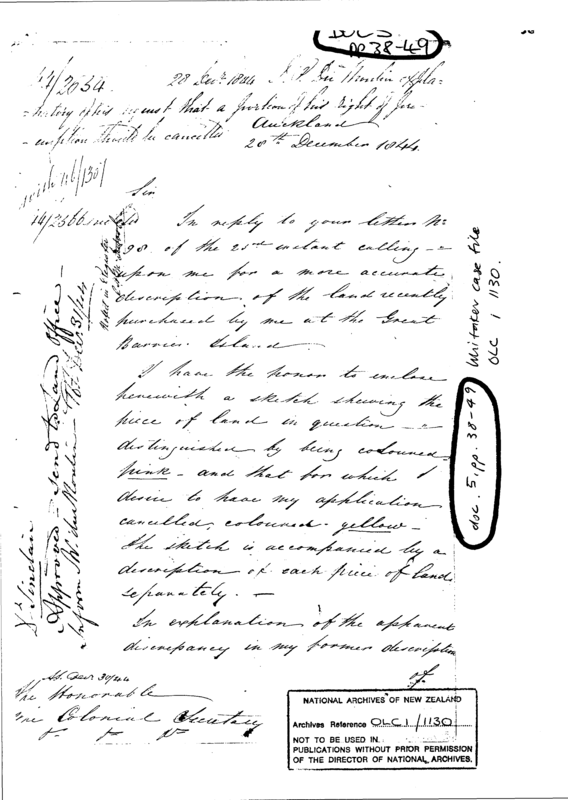 Doc 5
pp 38-49
44/2034.
28 Decr. 1844
that a portion of his right of pre-
-emption should be cancelled
Auckland
28th December 1844.
Sir
In reply to your letter No.
98 of the 23rd instant calling
upon me for a more accurate
description of the land recently
purchased by me at the Great
Barrier Island
I have the honor to enclose
herewith a sketch shewing the
piece of land in question
distinguished by being coloured
pink - and that for which I
desire to have my application
cancelled, coloured yellow -
The sketch is accompanied by a
description of each piece of land
separately. -
In explanation of the apparent
discrepancy in my former description
of
The Honorable
The Colonial Secretary
Dr. Sinclair
Approved - send to Land Office -
Inform Mr.
Whitaker case file
OLC 1 1130.
doc. 5, pp. 38-49
NATIONAL ARCHIVES OF NEW ZEALAND
Archives Reference OLC 1/1130
NOT TO BE USED IN
PUBLICATIONS WITHOUT PRIOR PERMISSION
OF THE DIRECTOR OF NATIONAL ARCHIVES.